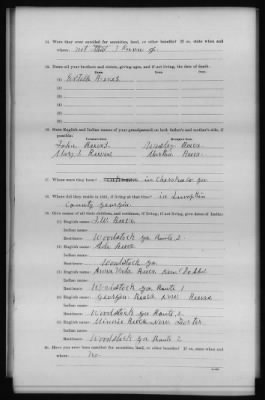 14. Were they ever enrolled for annuities, land, or other benefits? If so, state when and
where: not that I know of
15. Name all your brothers and sisters, giving ages, and if not living, the date of death:
Name Born Died
(1)
(2)
(3)
(4)
(5)
(6)
16. State English and Indian names of your grandparents on both father's and mother's side, if
possible:
John Reeves Wesley Reece
Mary L Reeves Martha Reece
17. Where were they born? in Cherokee ga
18. Where did they reside in 1851, if living at that time? in Lumpkin
County georgia
19. Give names of all their children, and residence, if living; if not living, give dates of deaths:
(1) English name: J.W. Reece
Indian name:
Residence: Woodstock ga Route 2
(2) English name:
Indian name:
Residence: Woodstock ga
(3) English name:
Indian name:
Residence: Woodstock ga Route 1
(4) English name: Georgia Reece now Reeves
Indian name:
Residence: Woodstock ga Route 2
(5) English name: Minnie Reece now
Indian name:
Residence: Woodstock ga Route 2
20. Have you ever been enrolled for annuities, land, or other benefits? If so, state when and
where: No